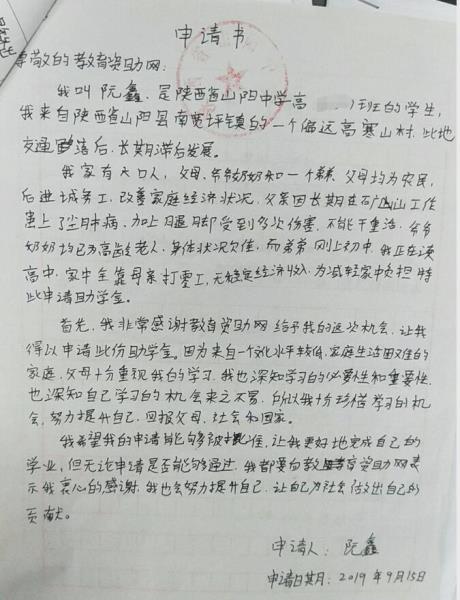 申请书
尊敬的教育资助网:
我叫阮鑫,是陕西省山阳中学高 班的学生,
我来自陕西省山阳县南宽坪镇的一个偏远高寒山村,此地
交通 落后,长期滞后发展。
我家有六口人,父母、爷爷奶奶和一个弟弟,父母均为农民,
后进城务工,改善家庭经济状况,父亲因长期在矿山工作
患上了尘肺病,加上腿脚受到多次伤害,不能干重活,爷爷
奶奶均已为高龄老人,身体状况欠佳,而弟弟刚上初中,我正在读
高中,家中全靠母亲打零工,无稳定经济收入,为减轻家中负担,特
此申请助学金。
首先,我非常感谢教育资助网给予我的这次机会,让我
得以申请此份助学金。因为来自个文化水平较低,家庭生活困难的
家庭,父母十分重视我的学习,我也深知学习的必要性和重要性,
也深知自己学习的机会来之不易,所以我十分珍惜学习的机
会,努力提升自己,回报父母、社会和国家。
我希望我的申请能够被批准,让我更好地完成自己的
学业,但无论申请是否能够通过,我都要向教育资助网表
示我衷心的感谢,我也会努力提升自己,让自己为社会做出自己的
贡献。
申请人:阮鑫
申请日期:2019年9月15日